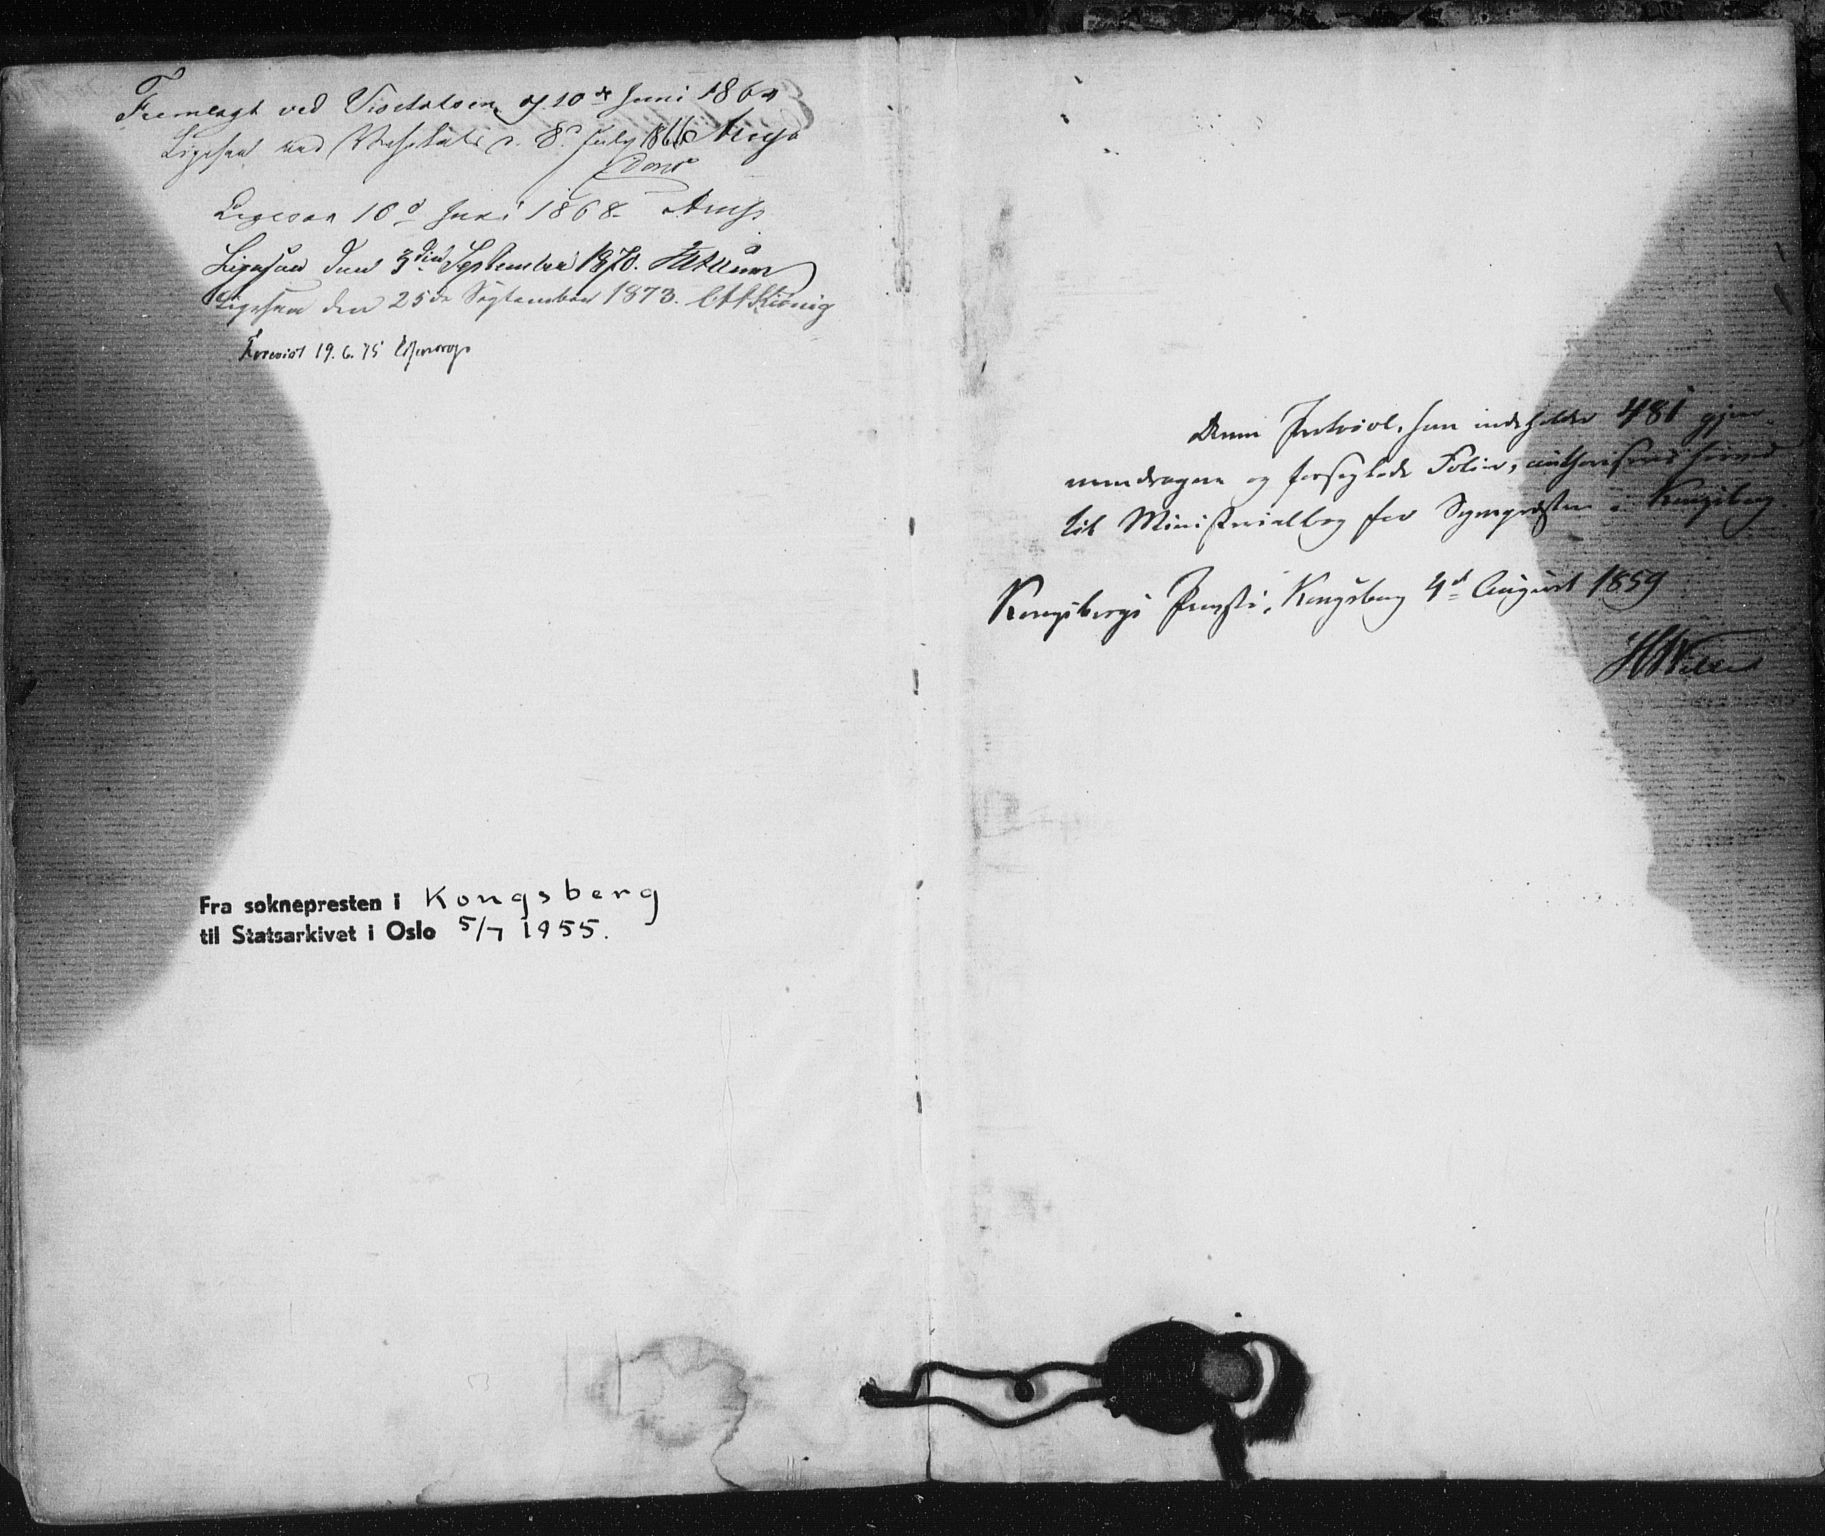 Fremlagt ved Visitatsen d. 10de Juni 1864
Ligesaa ved Visitats d. 8de July 1866 Arup
Ligesaa 10d Juni 1868. Arup
Ligesaa den 3die September 1870.
Ligesaa den 25de September 1873.
Forevist 19.6.75
Fra soknepresten i Kongsberg
til Statsarkivet i Oslo 5/7 1955.
Denne Protocol, som indeholder 481 gjen-
nemdragne og forseglede Folier, authoriseres herved
til Ministerialbog for Sognepræsten i Kongsberg.
Kongsbergs Provsti, Kongsberg 4de August 1859